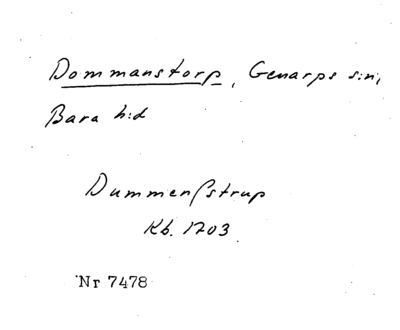 Dommanstorp, Genarps s:n,
Bara h:d
Dummenſstrup
Kb. 1703.
Nr 7478